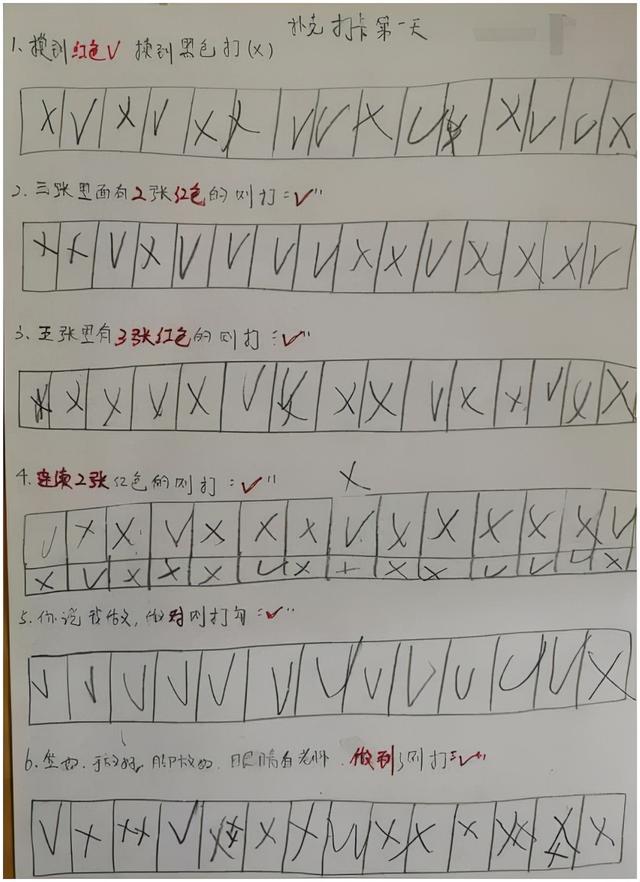 扑克打卡第一天
1、摸到红色V 摸到黑色打(X)
X V X V X X V V X V X X V V X
2、三张里面有2张红色的则打"√"
X X V X V V V V X X V X X X V
3、五张里有3张红色的则打"√"
X X X V X V X X X V X X V X X
4、连续2张红色的则打"√"
X
V X X V X X X V X X X X X V
X V X X X V X X X X V V V X
5、你说我做,做对则打勾"√"
V V V V V V V V V V V V X
6、坐好、手放好、脚放好、眼睛看老师、做到了则打"√"
V X X X V X X X X X X X X X X X